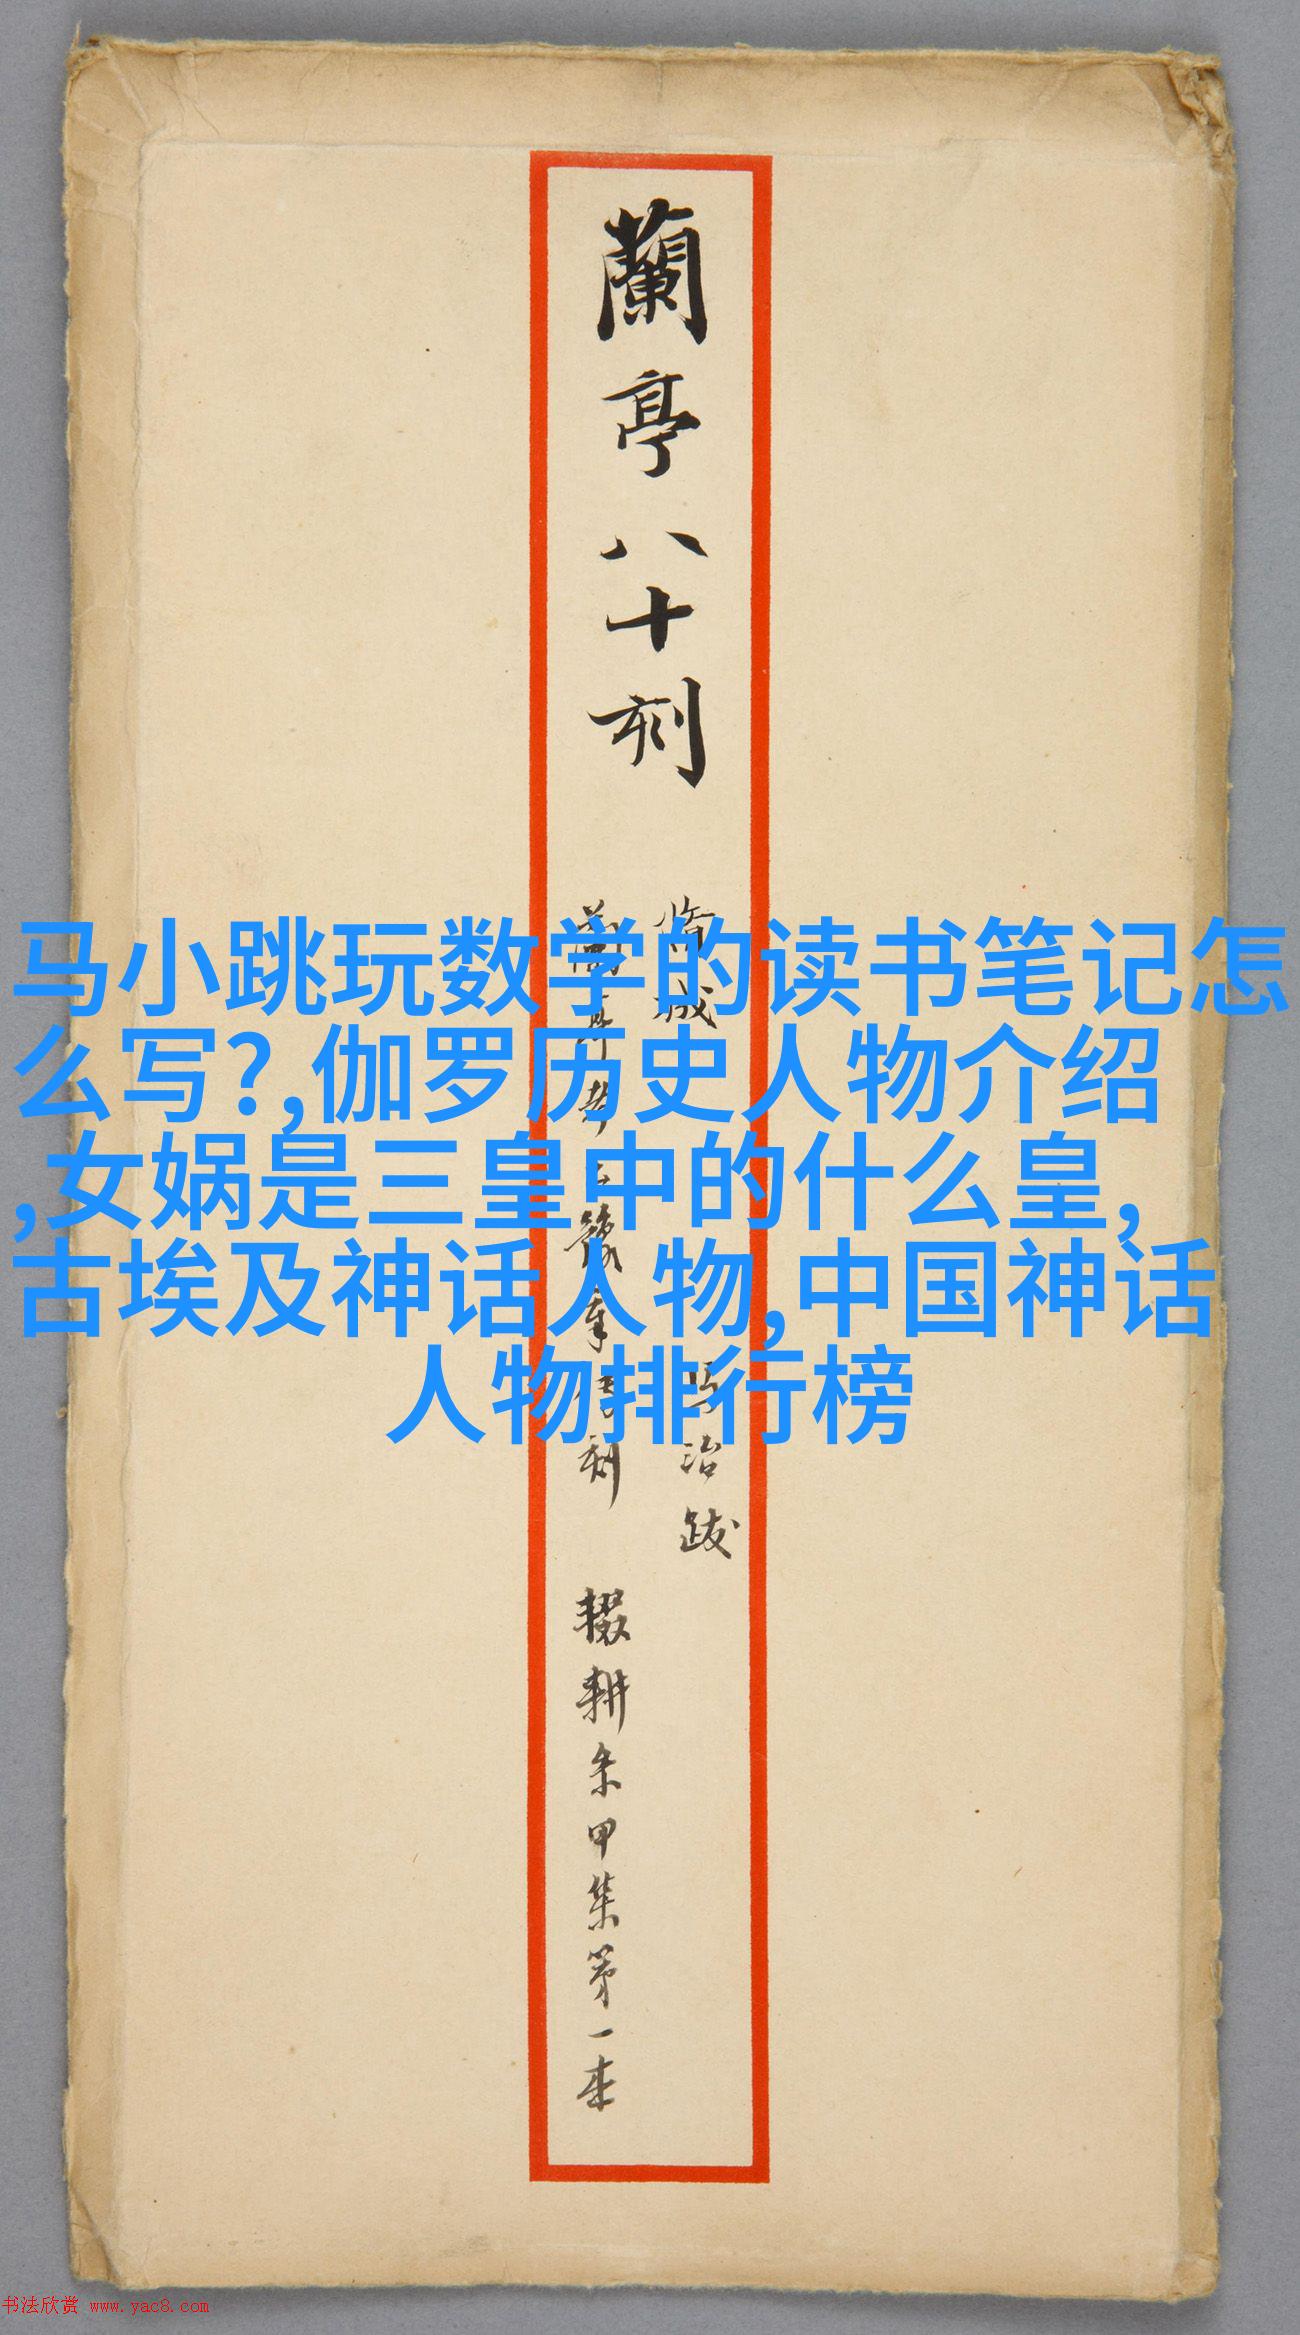 蘭亭八十刻
馬治跋
輟耕朱甲集第一本
马小跳玩数学的读书笔记怎
么写?,伽罗历史人物介绍
,女娲是三皇中的什么皇,
古埃及神话人物,中国神话
人物排行榜
书法欣赏 www.yac8.com